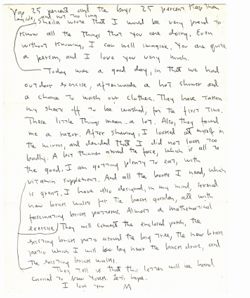 Yes 25 percent and the boys 25 percent less than
inside, and not too long.
Sheila wrote that I would be very proud to
know all the things that you are doing. Even
without knowing, I can well imagine. You are quite
a person, and I love you very much.
Today was a good day, in that we had
outdoor exercise, afterwards a hot shower and
a chance to wash our clothes. They have taken
my shoes off to be washed, for the first time.
Those little things mean a lot. Also, they found
me a razor. After shaving, I looked at myself in
the mirror, and decided that I did not look too
badly. A bit thinner around the face, which is all to
the good. I am getting plenty to eat, with
vitamin supplement. And all the books I need, which
is great. I have also designed, in my mind, several
new brick walks for the back garden, all with
fascinating brick patterns. Almost a mathematical
exercise. They will connect the enclosed porch, the
existing brick patio around the big tree, the new brick
patio which I will be by near the back door, and
the existing brick walks.
They tell us that this letter will be hand
carried to New York. Let's hope.
I love you M